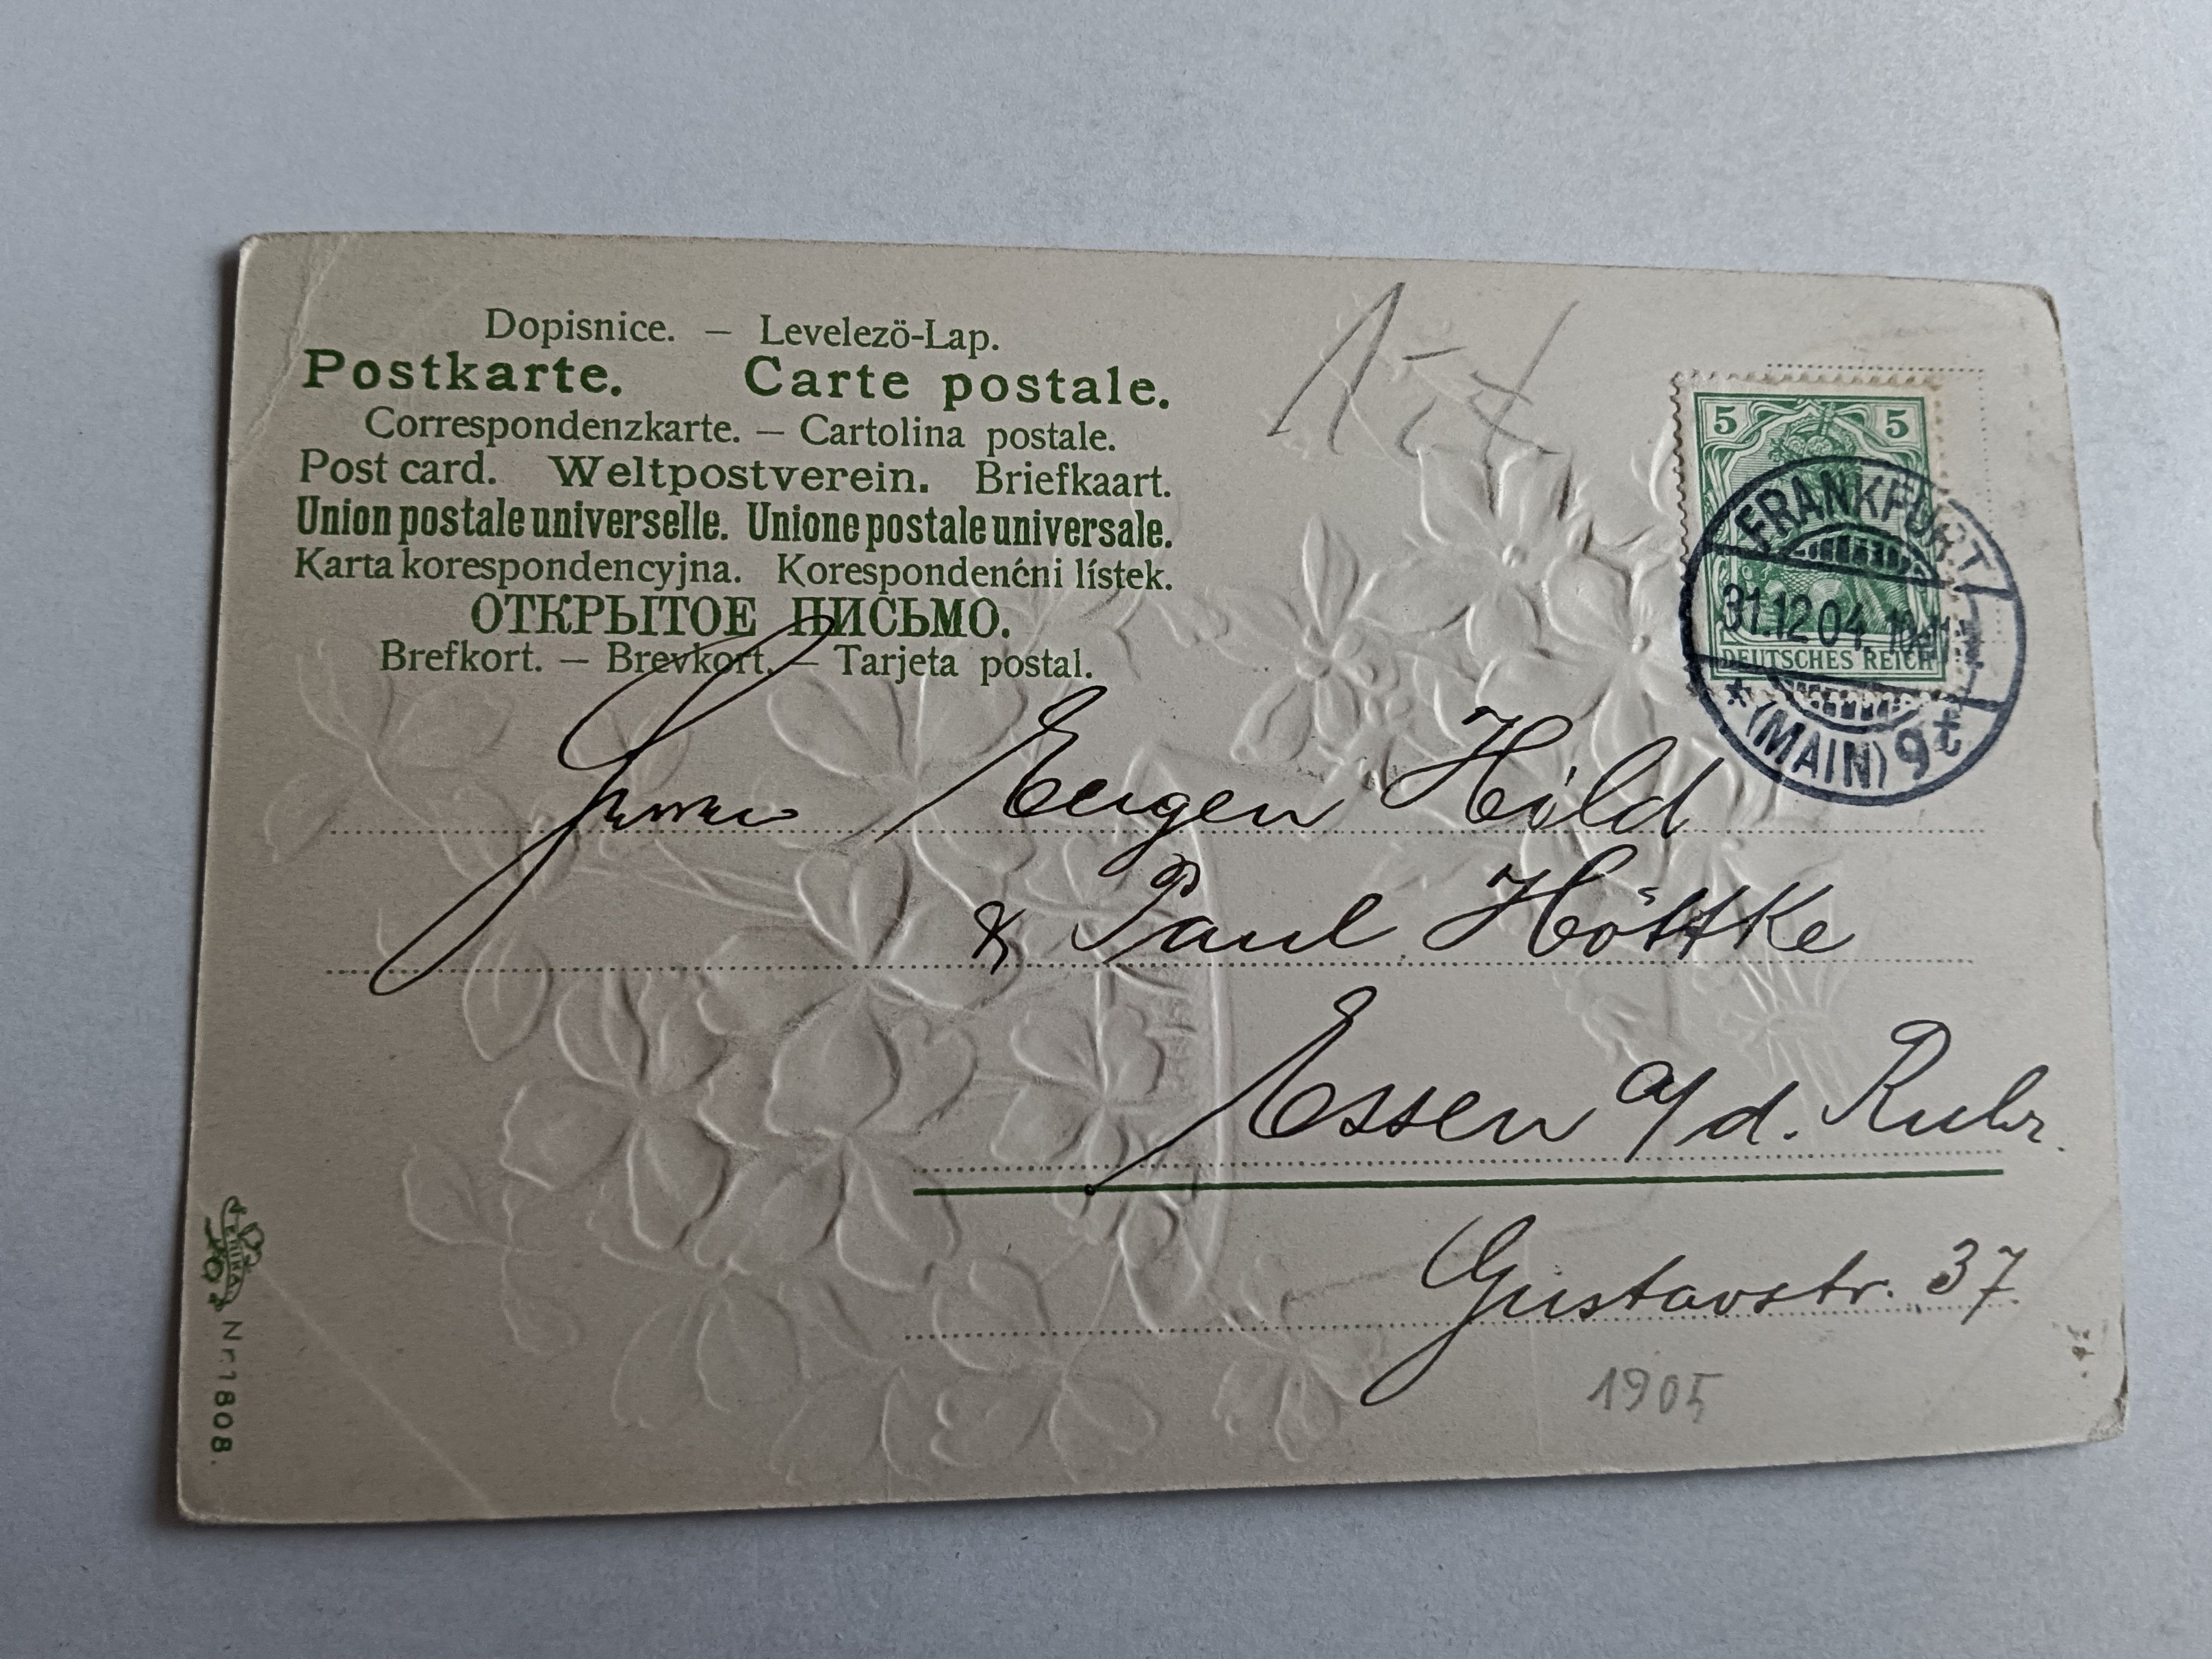 Dopisnice. — Levelezö-Lap.
Postkarte. Carte postale.
Correspondenzkarte. — Cartolina postale.
Post card. Weltpostverein. Briefkaart.
Union postale universelle. Unione postale universale.
Karta korespondencyjna. Korespondenčni lístek.
ОТКРЫТОЕ ПИСЬМО.
Brefkort. — Brevkort. — Tarjeta postal.
1-
5 5
DEUTSCHES REICH
FRANKFURT
31.12 04
* (MAIN) 9 t
Herren Eugen Hild
& Paul Höttke
Essen a/d. Ruhr.
Gustavstr. 37
1905
ERIKA
Nr. 1808.